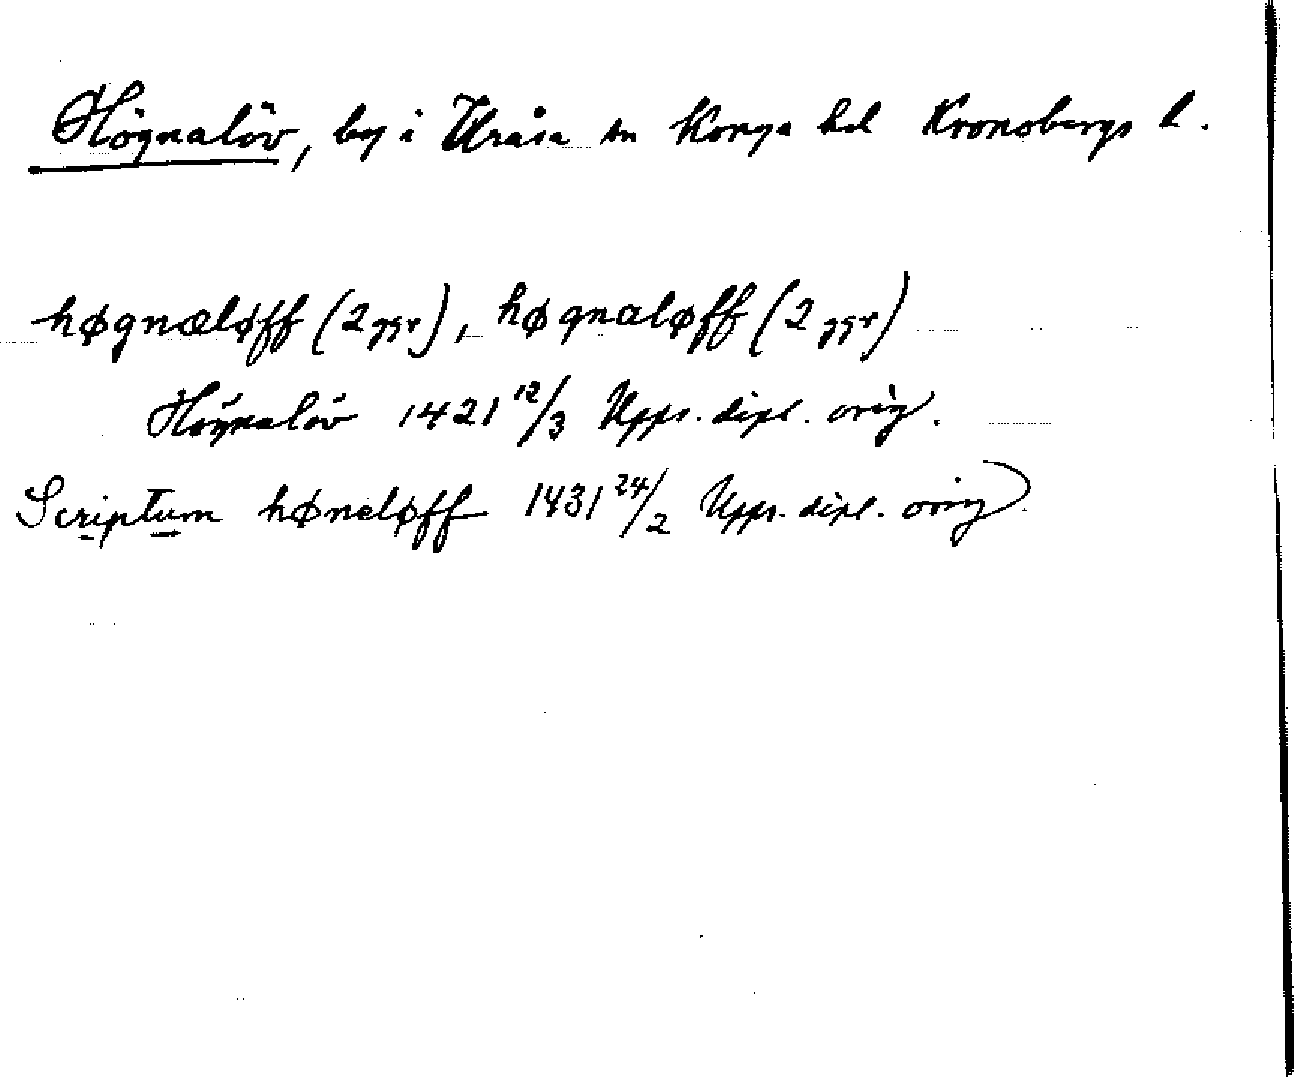 Högnalöv, by i Uråsa sn Konga hd Kronobergs l.
høgnæløff (2 ggr), høgnaløff (2 ggr)
Högnalöv 1421 12/3 Upps. dipl. orig.
Scriptum høneløff 1431 24/2 Upps. dipl. orig